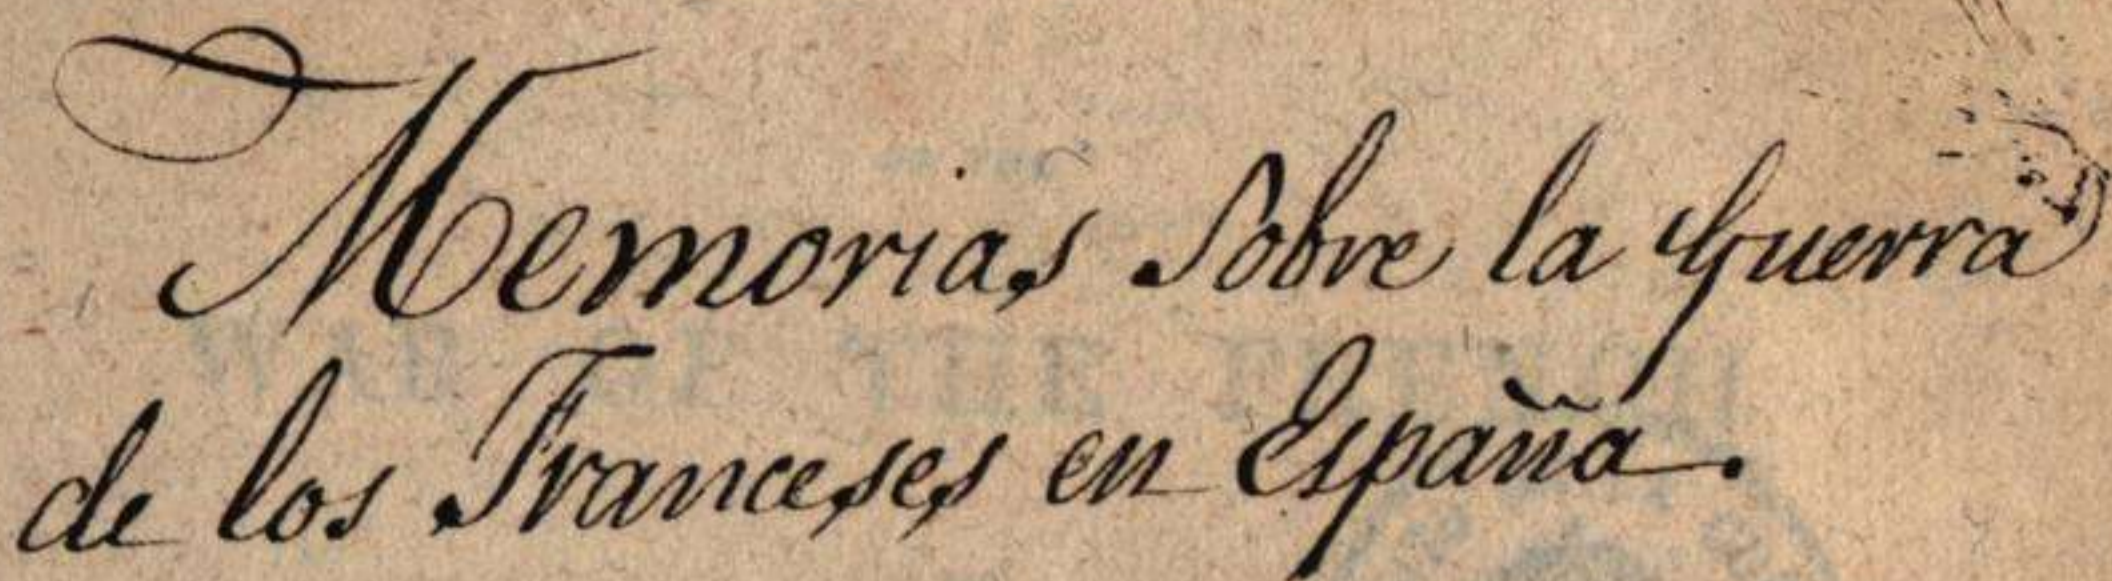 Memorias Sobre la Guerra
de los Franceses en España.